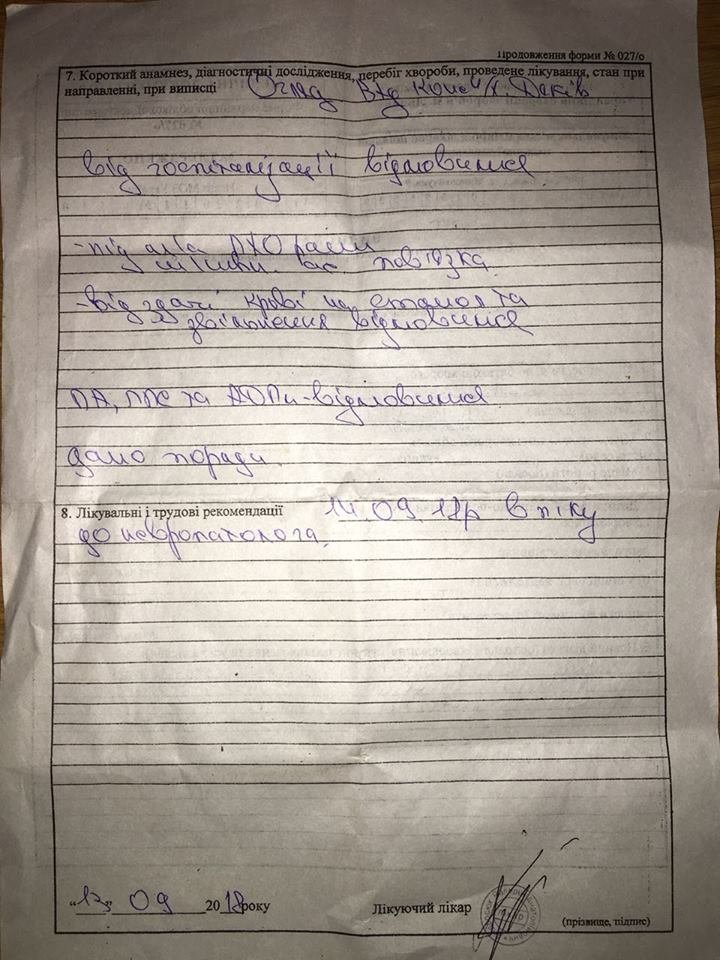 Продовження форми № 027/о
7. Короткий анамнез, діагностичні дослідження, перебіг хвороби, проведене лікування, стан при
направленні, при виписці Огляд
від госпіталізації відмовився
-під м/а ПХО рани
шкіри. ас повязка
-від здачі крові на етанол та
звільнення відмовився
ПА, ППС та АДПм-відмовився
дано поради.
8. Лікувальні і трудові рекомендації 14.09.18р в п-ку
до невропатолога.
09 2018року
Лікуючий лікар
(прізвище, підпис)